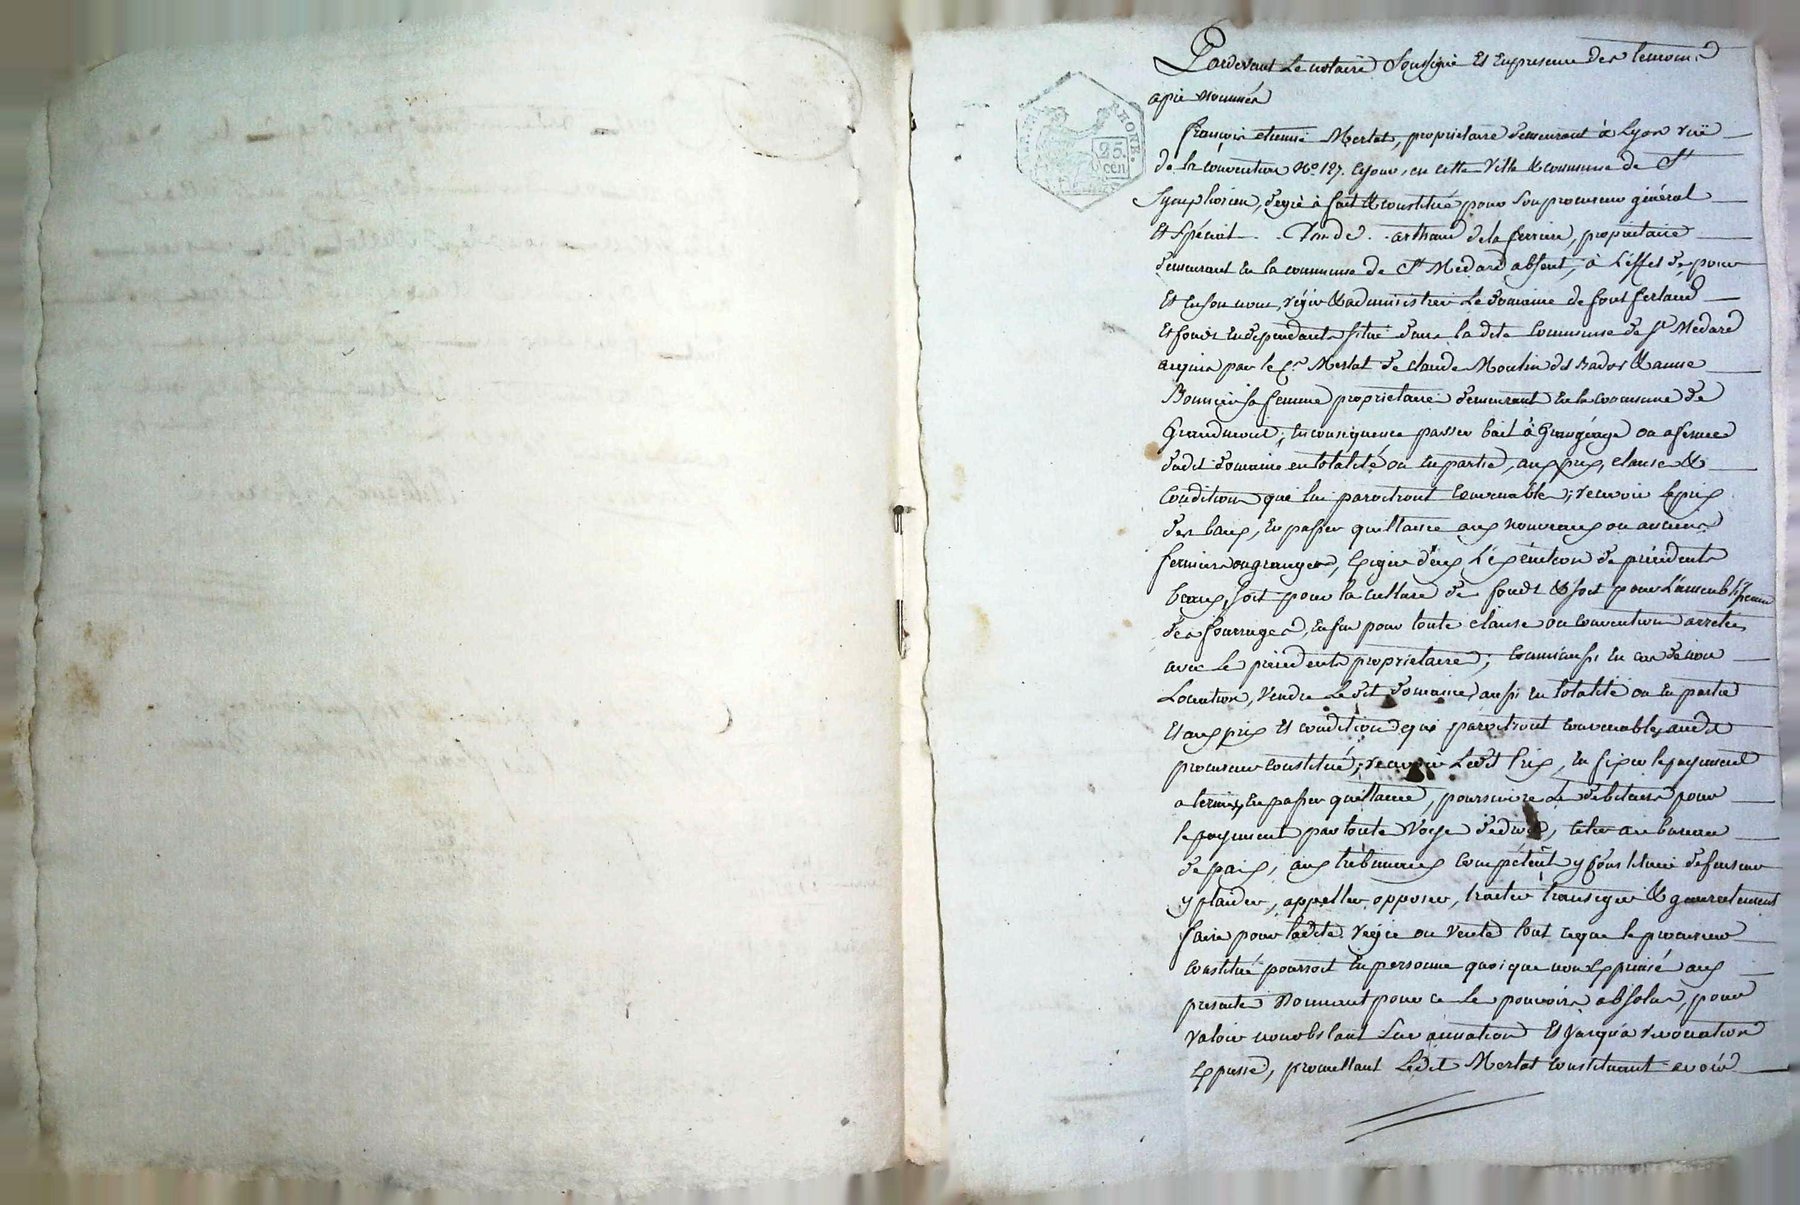 RHONE.
25.
cen
Pardevant Le notaire Soussigné Et En presence des temoins
apré Nommés
françois etienne Merlat, proprietaire demeurant à Lyon rüe
de la convention N° 127. Cejour, en cette Ville & commune de St
Symphorien, degré à fait & constitué pour Son procureur général
Et Spécial arthaud dela ferriere, proprietaire
demeurant En la commune de St Medard absent, à L'effet de pour
Et En son nom, régir & administrer Le domaine de font ferland
Et fonds En dependants situé dans ladite Commune de St Medard
acquis par le Cn Merlat de claude Moulin & anne
Bonnier sa femme proprietaire demeurant En la commune de
Grandmont; En consequence passer bail à Grangéage ou a ferme
dudit domaine en totalité ou En partie, aux prix, clause &
Condition que lui paroitront Convenable; recevoir le prix
des baux, En passer quittance aux nouveaux ou anciens
fermiers ou grangers, Exiger d'eux L'éxécution de précédents
beaux, soit pour la culture de fonds & soit pour L'ameublissement
des fourrages, Enfin pour toute clause ou convention arretées
avec Le précédents proprietaire; Comm'aussi En cas de non
Location, Vendre Ledit domaine, aussi En totalité ou En partie
Et aux prix Et condition qui paroitront convenables audit
procureur Constitué; recevoir Ledit Prix, En fixer le payement
a termes, En passer quittance, poursuivre Le debiteurs pour
le payement par toute Voye de droit, citer au bureau
de paix, aux tribunaux compétent, y Constituer defenseur
y plaider, appeller opposer, traiter transiger & generalement
faire pour ladite régie ou Vente tout ceque le procureur
Constitué pourroit En personne quoique non Exprimé aux
presente Donnant pour ce Le pouvoir absolus, pour
Valoir nonobstant Surannation Et jusqu'a revocation
Expresse, promettant Ledit Merlat Constituant avoir